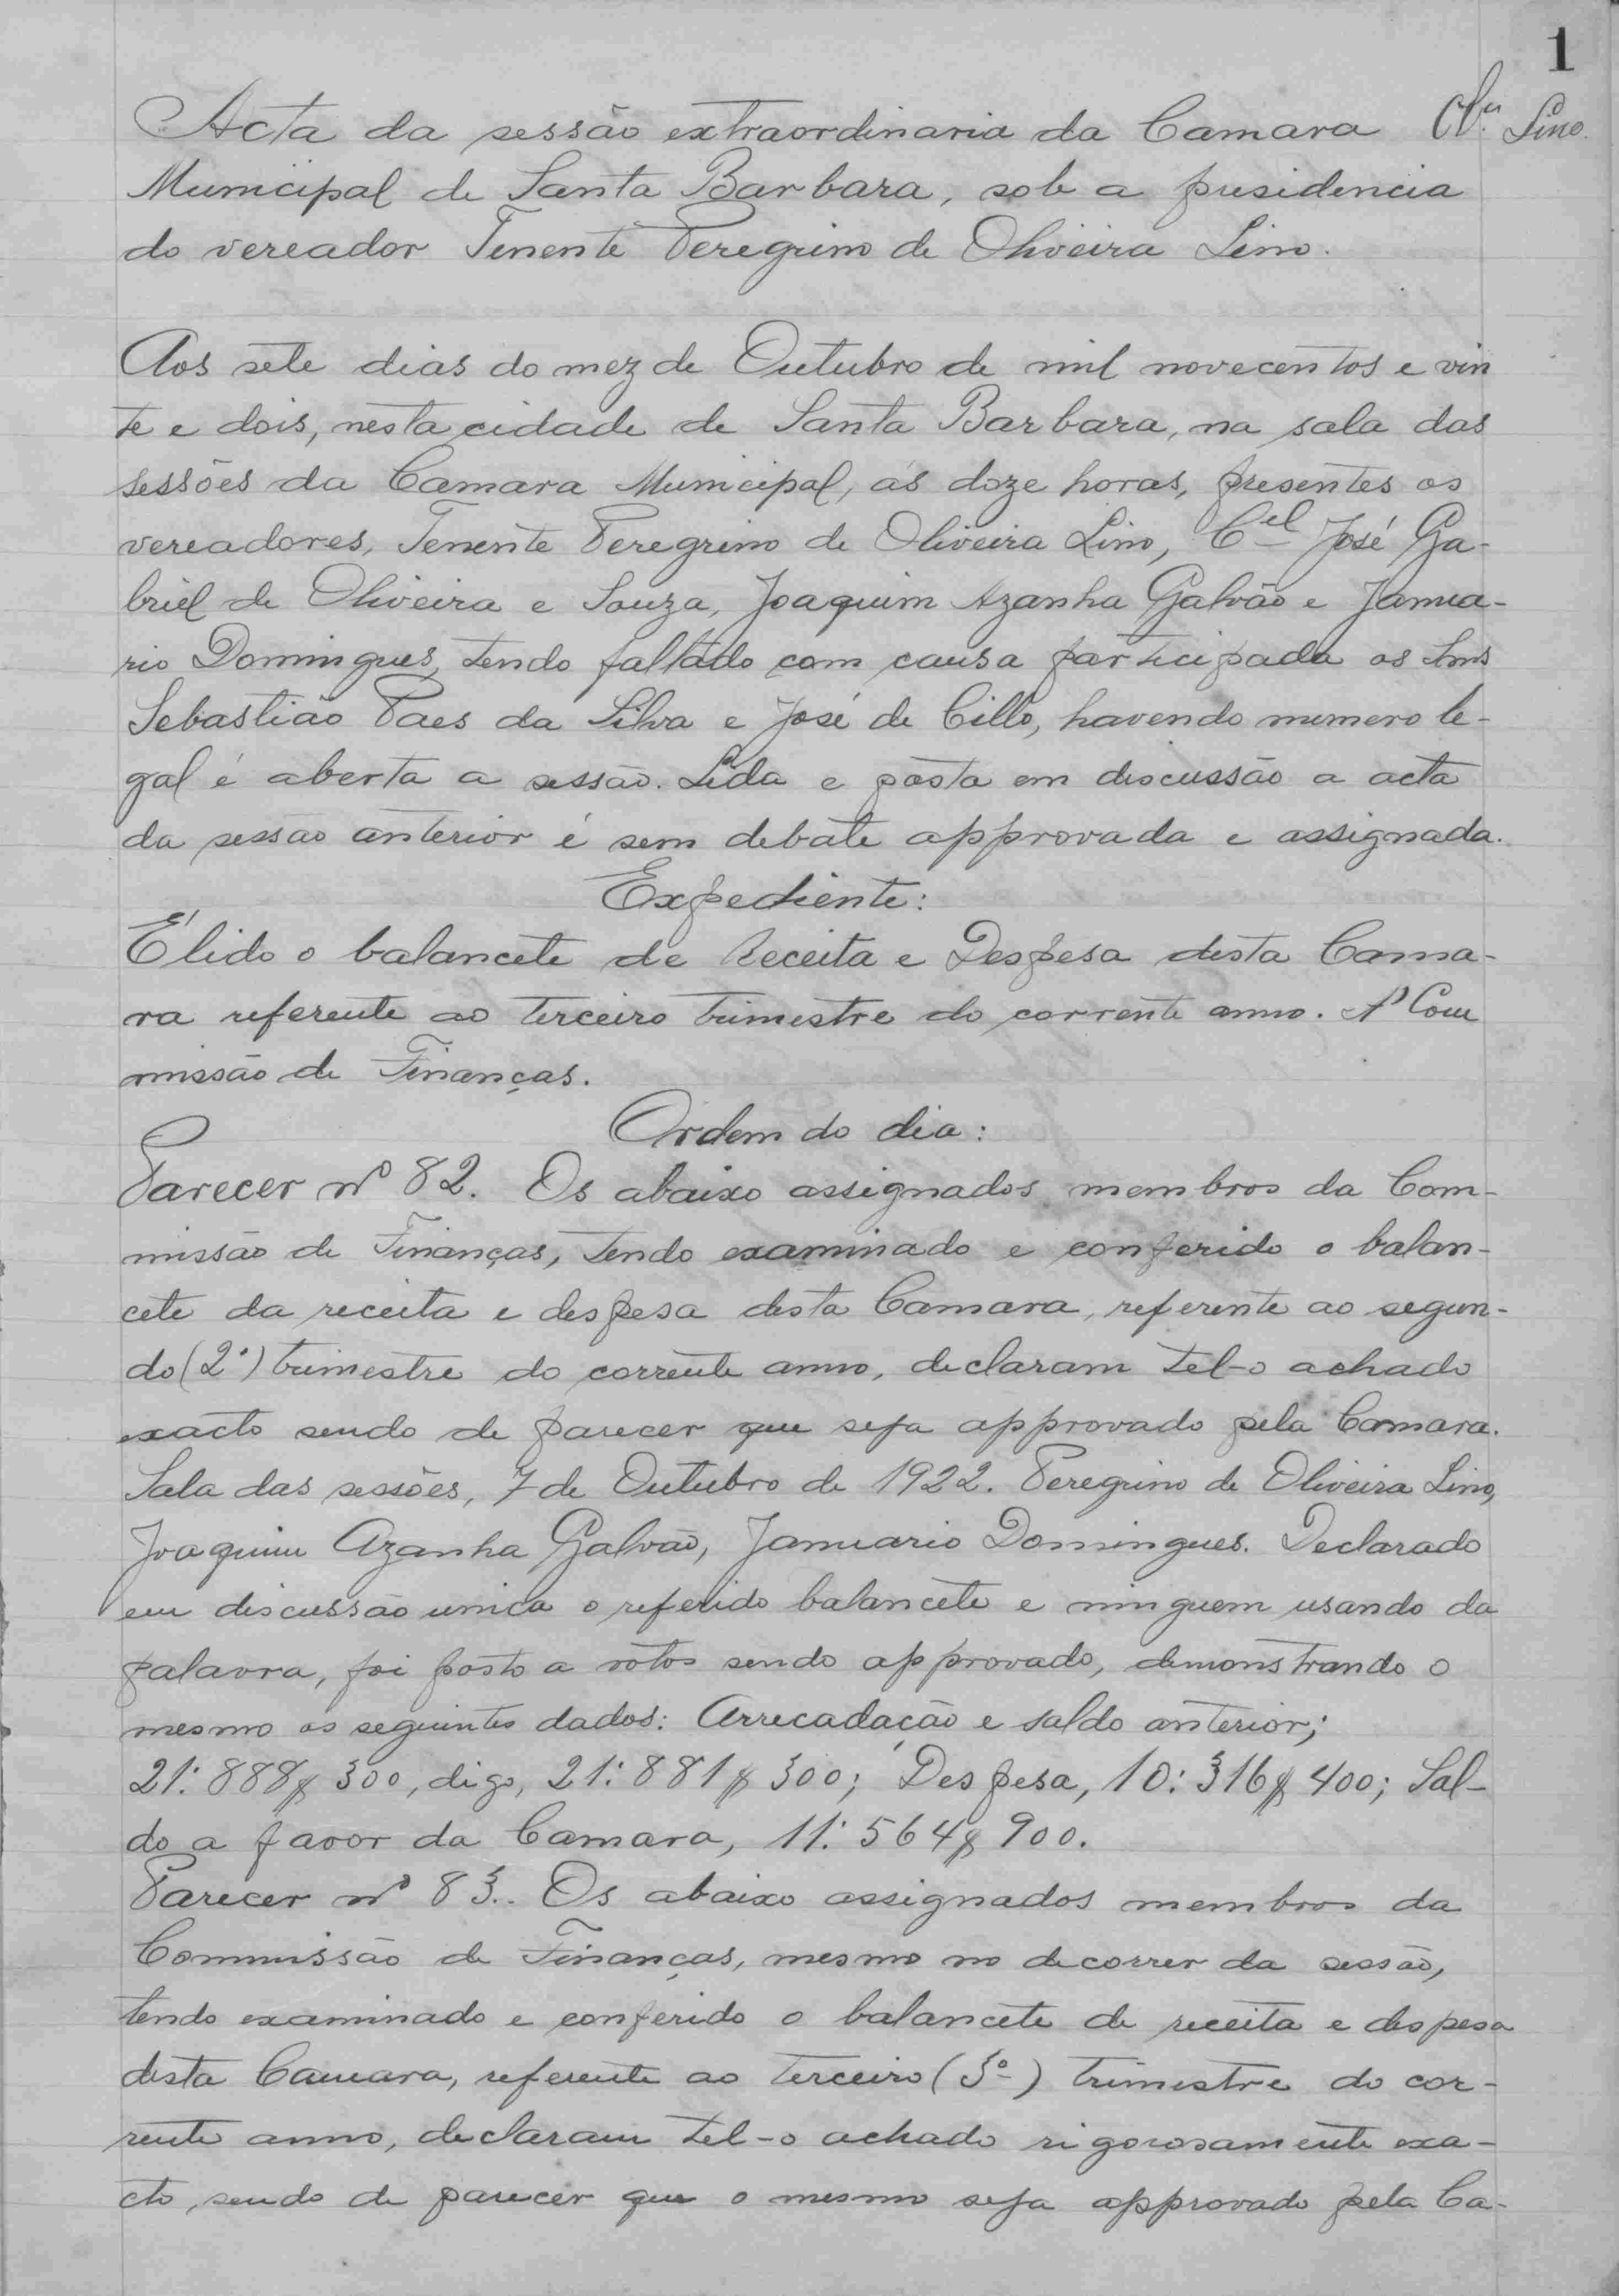 1
Lino.
Acta da sessão extraordinaria da Camara
Municipal de Santa Barbara, sob a presidencia
do vereador Tenente Peregrino de Oliveira Lino.
Aos sete dias do mez de Outubro de mil novecentos e vin
te e dois, nesta cidade de Santa Barbara, na sala das
sessões da Camara Municipal, ás doze horas, presentes os
vereadores, Tenente Peregrino de Oliveira Lino, Cel José Ga-
briel de Oliveira e Souza, Joaquim Azanha Galvão e Janua-
rio Domingues, tendo faltado com causa participada os Snrs
Sebastião Paes da Silva e José de Cillo, havendo numero le-
gal é aberta a sessão. Lida e posta em discussão a acta
da sessão anterior é sem debate approvada e assignada.
Expediente:
É lido o balancete de Receita e Despesa desta Cama-
ra referente ao terceiro trimestre do corrente anno. A' Com
missão de Finanças.
Ordem do dia:
Parecer nº 82. Os abaixo assignados membros da Com-
missão de Finanças, tendo examinado e conferido o balan-
cete da receita e despesa desta Camara, referente ao segun-
do (2º) trimestre do corrente anno, declaram tel-o achado
exacto sendo de parecer que seja approvado pela Camara.
Sala das sessões, 7 de Outubro de 1922. Peregrino de Oliveira Lino,
Joaquim Azanha Galvão, Januario Domingues. Declarado
em discussão unica o referido balancete e ninguem usando da
palavra, foi posto a votos sendo approvado, demonstrando o
mesmo os seguintes dados: Arrecadação e saldo anterior;
21:888$300, digo, 21:881$300; Despesa, 10:316$400; Sal-
do a favor da Camara, 11:564$900.
Parecer nº 83. Os abaixo assignados membros da
Commissão de Finanças, mesmo no decorrer da sessão,
tendo examinado e conferido o balancete de receita e despesa
desta Camara, referente ao terceiro (3º) trimestre do cor-
rente anno, declaram tel-o achado rigorosamente exa-
cto, sendo de parecer que o mesmo seja approvado pela Ca-